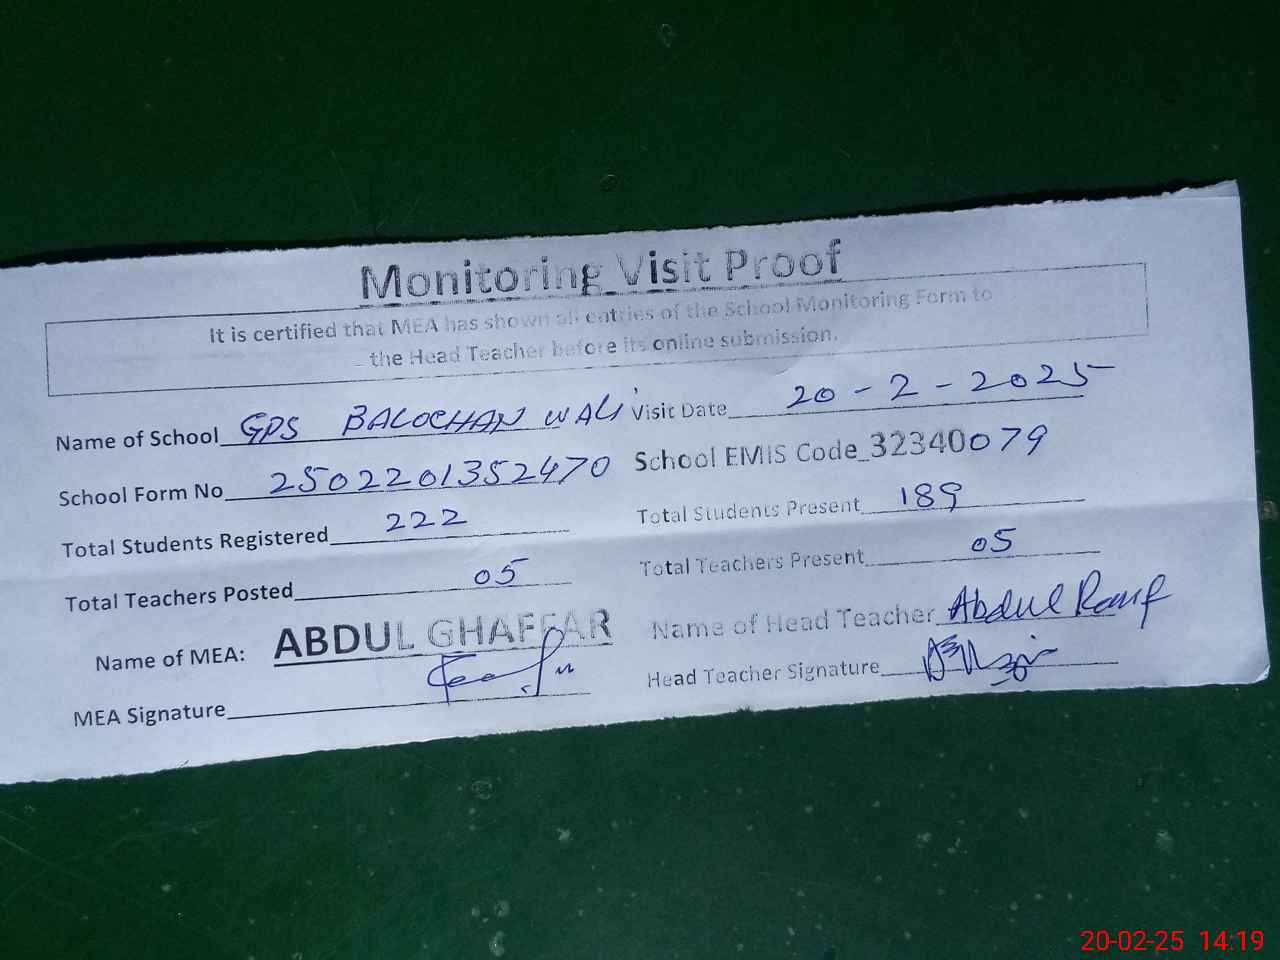 Monitoring Visit Proof
It is certified that MEA has shown all entries of the School Monitoring Form to
the Head Teacher before its online submission.
Name of School GPS BALOCHAN WALI Visit Date 20-2-2025
School Form No 2502201352470 School EMIS Code 32340079
Total Students Registered 222 Total Students Present 189
Total Teachers Posted 05 Total Teachers Present 05
Name of MEA: ABDUL GHAFFAR Name of Head Teacher Abdul Rauf
MEA Signature Head Teacher Signature
20-02-25 14:19